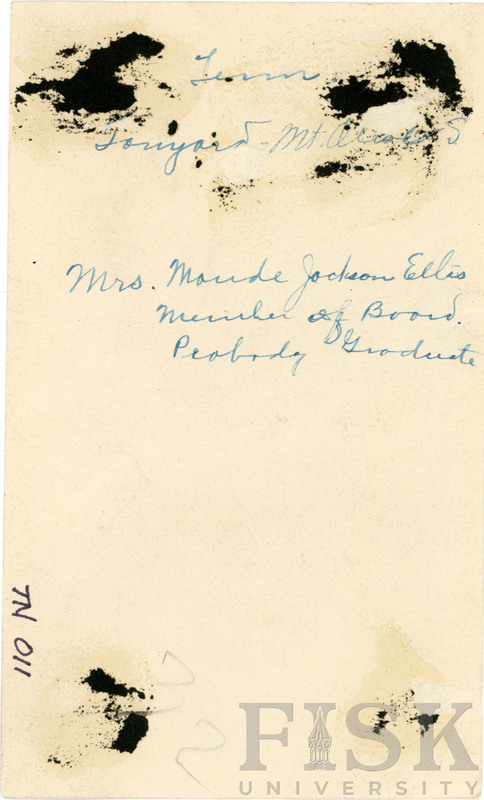 Tenn
Tonyard - Mt.
Mrs. Maude Jackson Ellis
Member of Board.
Peabody Graduate
TN 011
FISK
UNIVERSITY